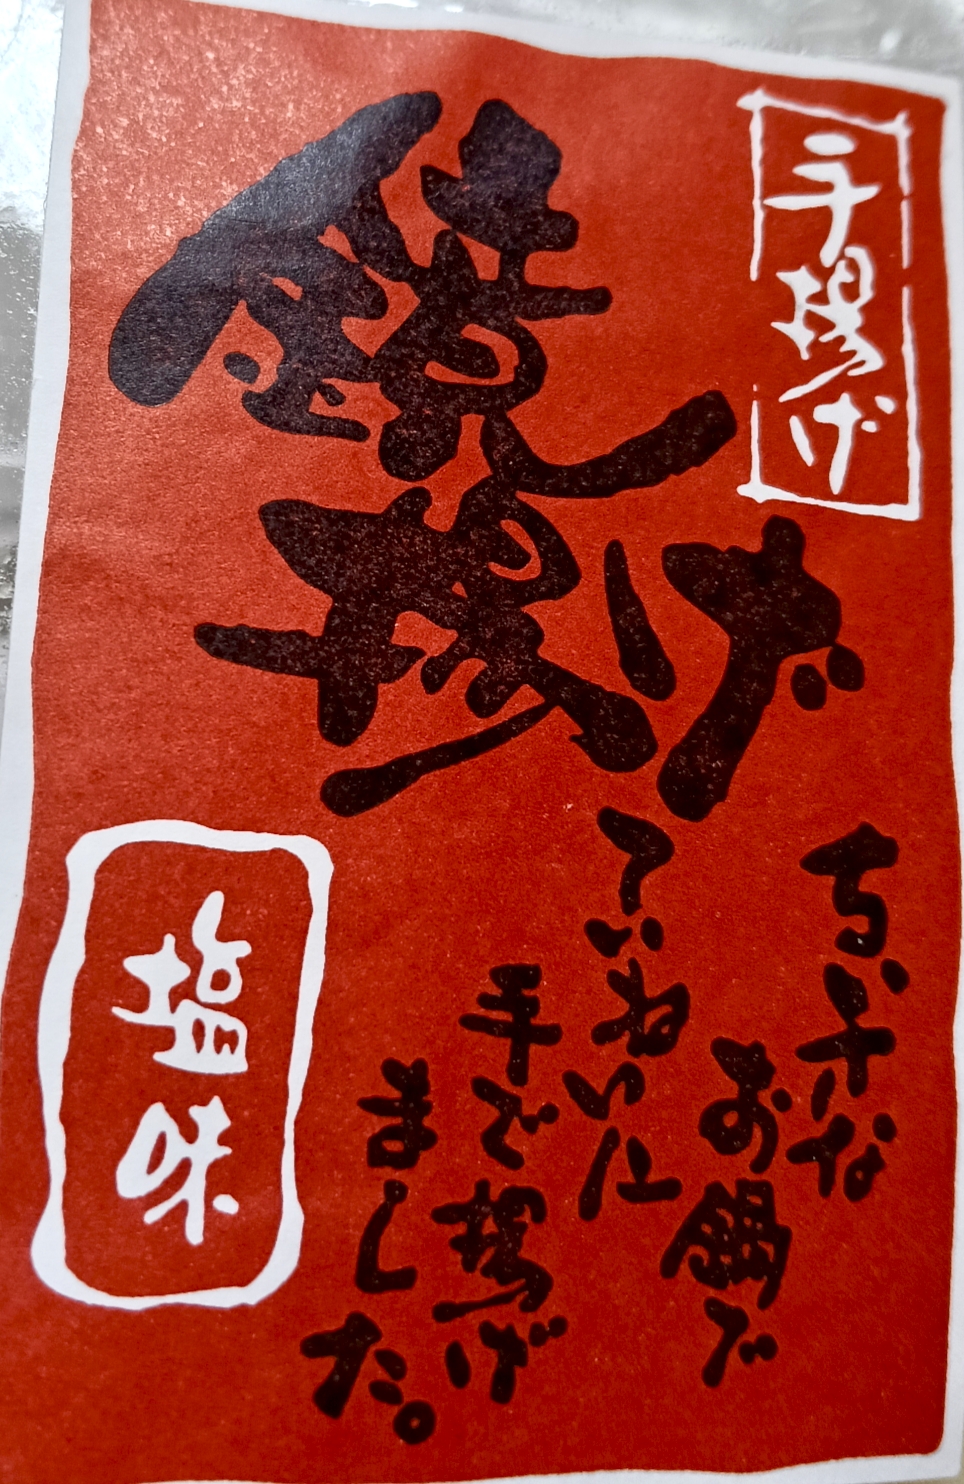 手揚げ
鏡揚げ
ちいさな
お鍋で
ていねいに
手で揚げ
ました。
塩味